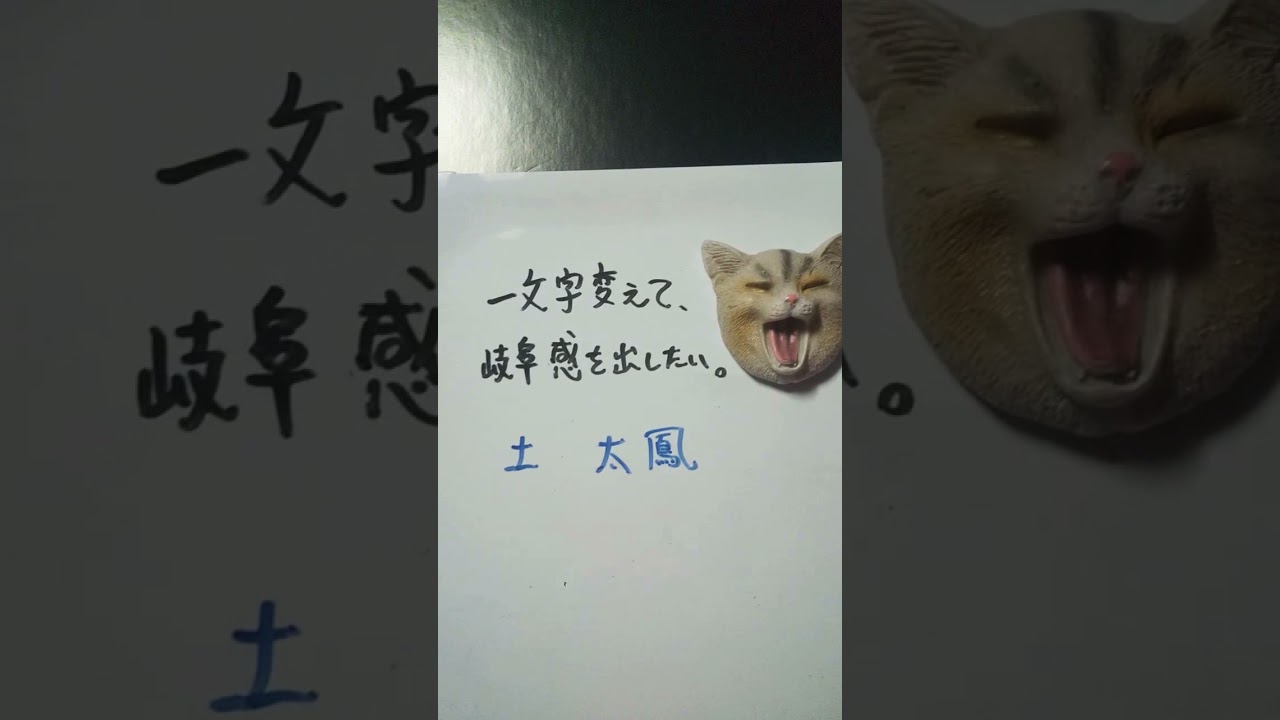 一文字変えて、
岐阜感を出したい。
土 太鳳